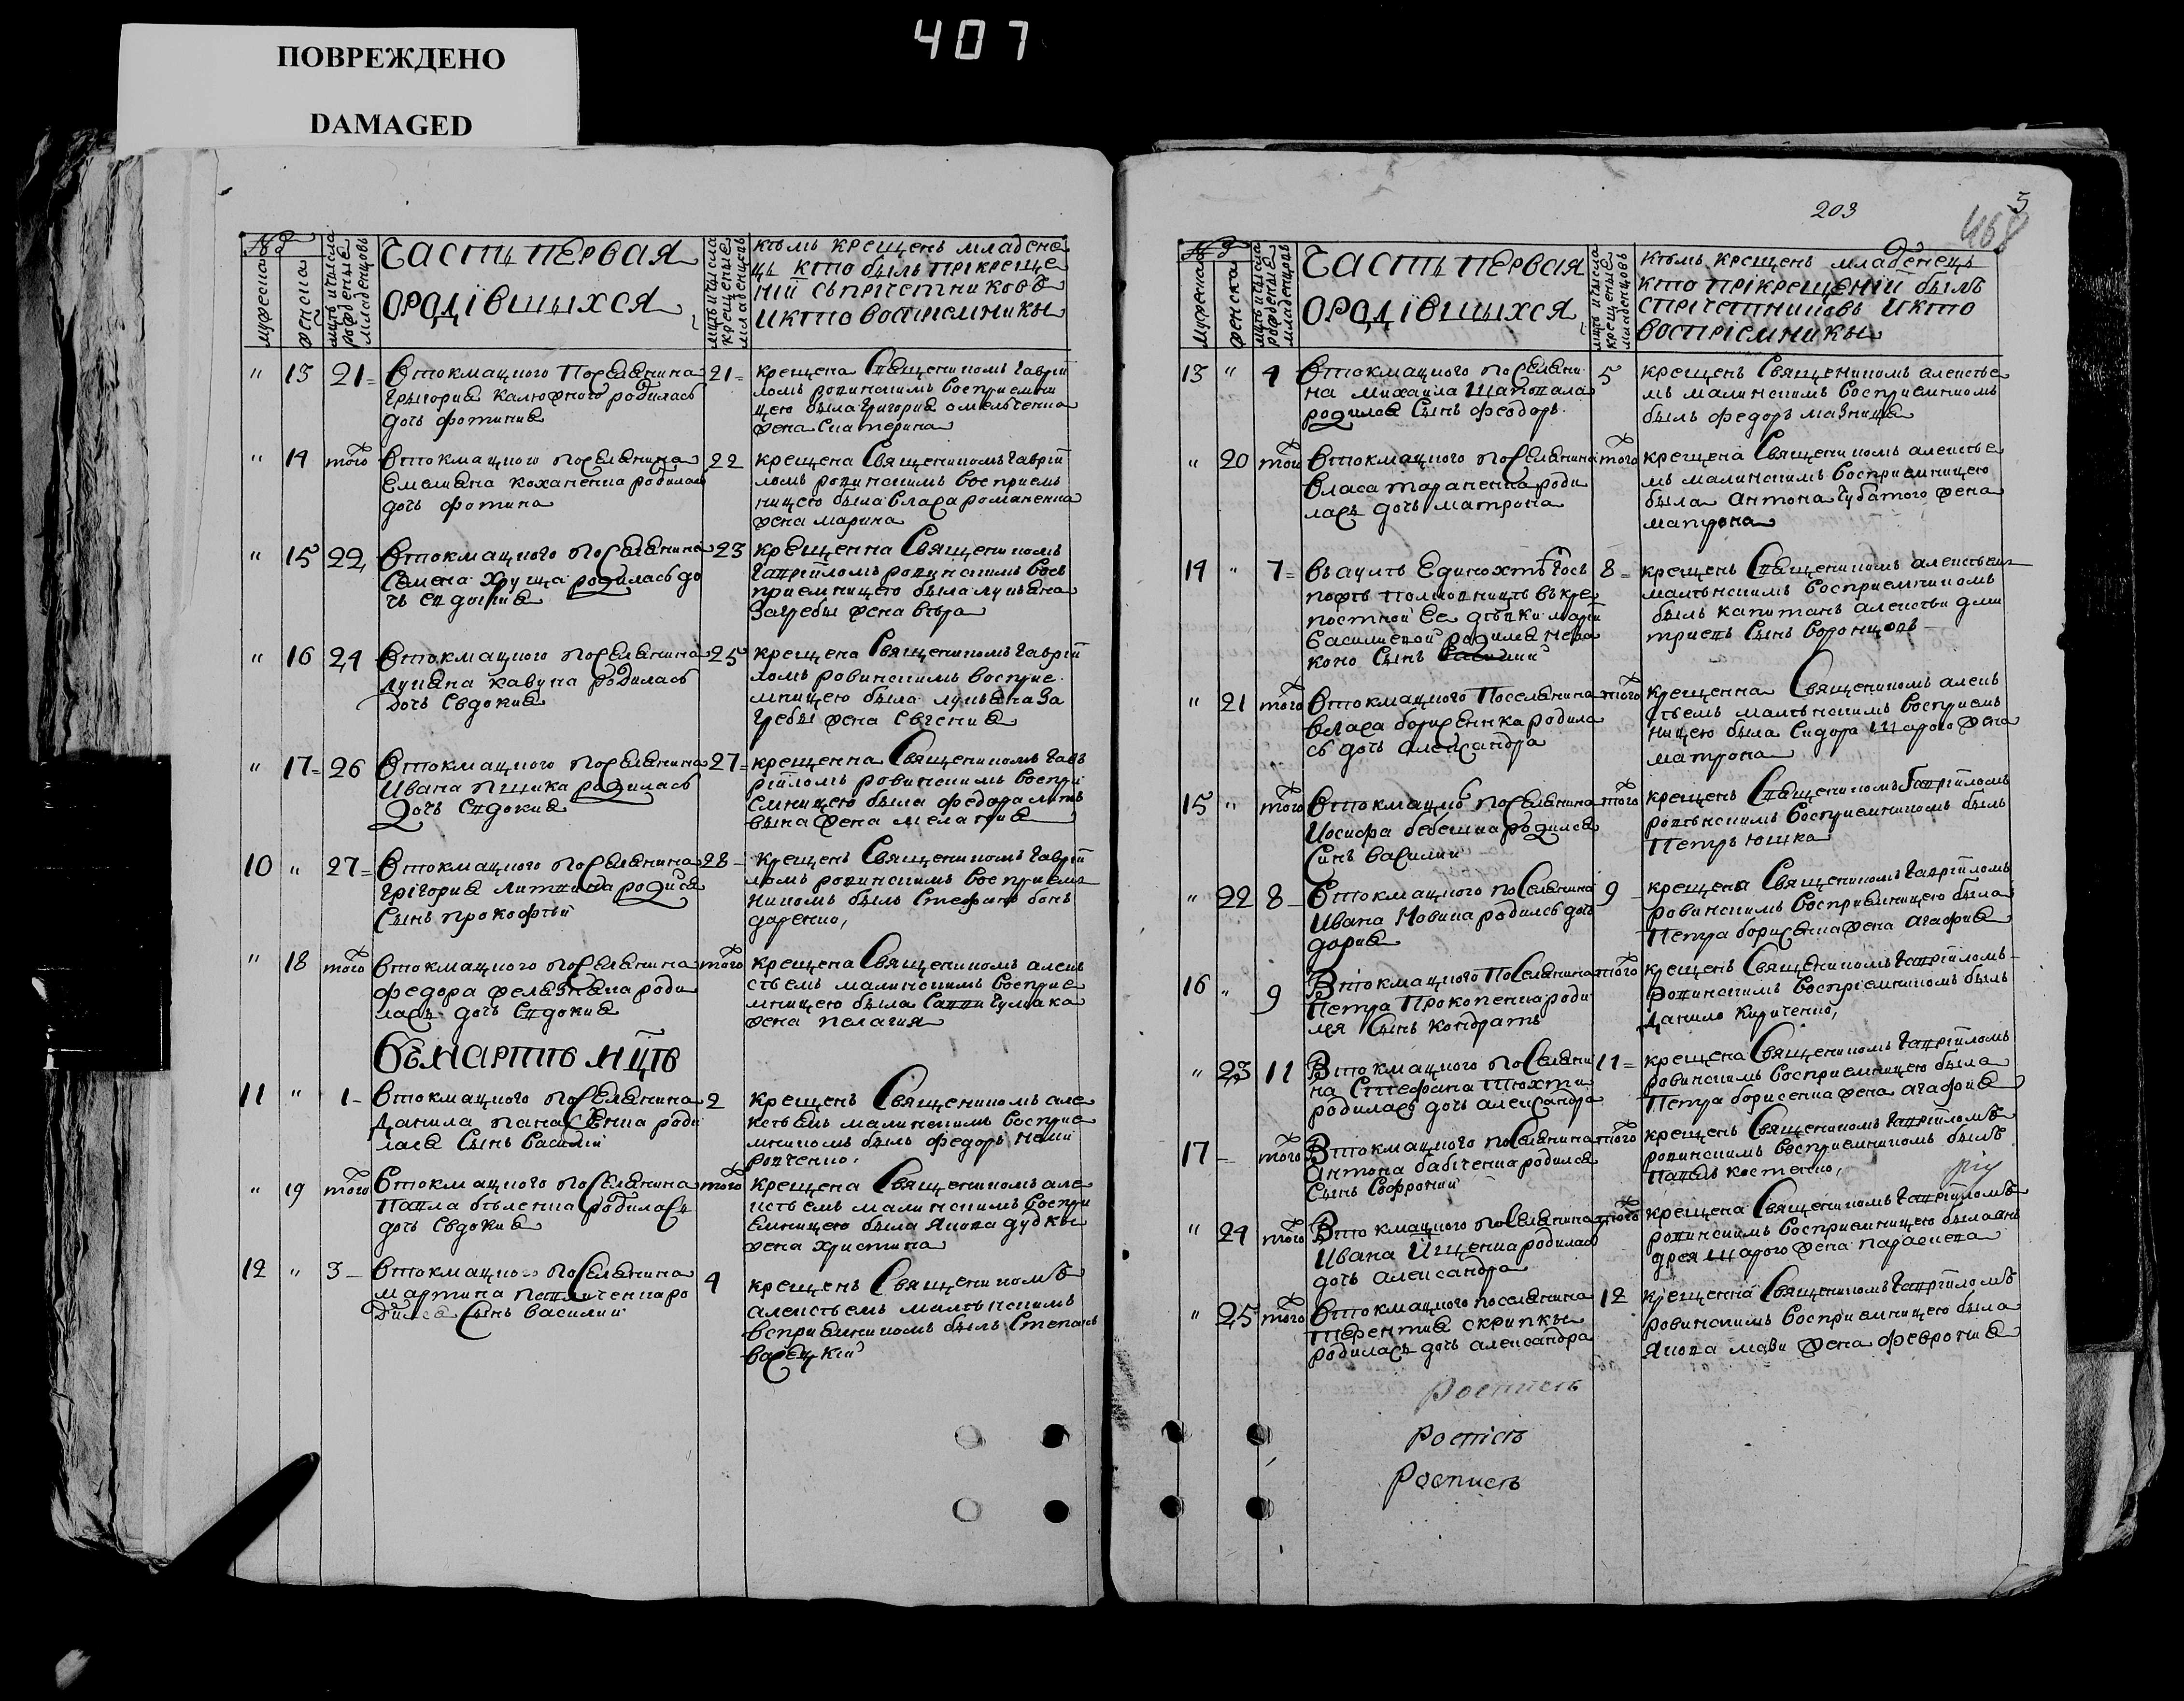 407
ПОВРЕЖДЕНО
DAMAGED
№
мужеска
женска
мцъ и числа рожденыя младенцовъ
ЧАСТЬ ПЕРВАЯ
ОРОДІВШЫХСЯ
мцъ и числа крещеные младенцовъ
кѣмъ крещенъ младене
цъ кто былъ прікреще
ніи съ прічетниковъ
и кто воспріемники
" 13 21 Втокмацкого Поселянина
Григория калюжного родилась
дочь фотиния
21 крещена Священикомъ Гаврїи
ломъ ровинскимъ восприемни
цею была Григория омельченка
жена Екатерина
" 14 того Втокмацкого поселянина
Емелияна коханенка родилась
дочь фотина
22 крещена Священикомъ Гаврїи
ломъ ровинскимъ восприем
ницею была власа романенка
жена марина
" 15 22 Втокмацкого поселянина
Семена Хруща родилась до
чь евдокия
23 крещенна Священикомъ
Гаврїиломъ ровинскимъ вос
приемницею была лукьяна
Загребы жена вѣра
" 16 24 Втокмацкого поселянина
лукяна кавуна родилась
дочь Евдокия
25 крещена Священикомъ Гаврїи
ломъ ровинскимъ восприе
мницею была лукьяна За
гребы жена Евгения
" 17 26 Втокмацкого поселянина
Ивана пщика родилась
дочь Евдокия
27 крещенна Священикомъ Гав
рїиломъ ровинскимъ воспри
емницею была федора литв
вына жена мелания
10 " 27 Втокмацкого поселянина
Грїгория литвина родися
Сынъ прокофтьй
28 крещенъ Священикомъ Гаврїи
ломъ ровинскимъ восприем
никомъ былъ Стефанъ бон
даренко,
" 18 того Втокмацкого поселянина
федора железняка роди
лась дочь Евдокия
того крещена Священикомъ алек
сѣемъ малинскимъ восприе
мницею была Саввы чумака
жена пелагия
ВЪ МАРТТѢ МЦѢ
11 " 1 Втокмацкого поселянина
данила панасенка роди
лся Сынъ василий
2 крещенъ Священикомъ але
ксѣемъ малинскимъ восприе
мникомъ былъ федоръ
" 19 того Втокмацкого поселянина
павла бѣленка родилась
дочь Евдокия
того крещена Священикомъ але
ксѣемъ малинскимъ воспри
емницею была Якова дудки
жена христина
12 " 3 Втокмацкого поселянина
мартина павличенка ро
дился Сынъ василий
4 крещенъ Священикомъ
алексѣемъ малѣнскимъ
всприемникомъ былъ Степанъ
васецкїй
203
5
468
№
мужеска
женска
мцъ и числа рожденыя младенцовъ
ЧАСТЬ ПЕРВАЯ
ОРОДІВШЫХСЯ
мцъ и числа крещеныя младенцовъ
кѣмъ крещенъ младенецъ
кто прікрещеніи былъ
спрічетниковъ и кто
воспріемники
13 " 4 Втокмацкого поселяни
на михаила шаповала
родился Сынъ феодоръ
5 крещенъ Священикомъ алексѣе
мъ малинскимъ восприемникомъ
былъ федоръ мазница
" 20 того Втокмацкого поселянина
власа тараненка роди
лась дочь матрона
того крещена Священикомъ алексѣе
мъ малинскимъ восприемницею
была антона губатого жена
матрона
14 " 7 въ аулѣ Единохтѣ Гос
пожѣ полковницѣ въ кре
постной Ее дѣвки марїи
василиевой родился неза
коно Сынъ василий
8 крещенъ Священикомъ алексѣем
малѣнскимъ восприемникомъ
былъ капитанъ алексѣи дми
триевъ Сынъ воронцовъ
" 21 того Втокмацкого Поселянина
власа борисенка родила
сь дочь александра
того крещенна Священикомъ алек
сѣемъ малѣнскимъ восприем
ницею была Сидора шарого жена
матрона
15 " того Втокмацкого поселянина
Иосифа бебешка родился
Синъ василий
того крещенъ Священикомъ Гаврїиломъ
ровѣнскимъ восприемникомъ былъ
Петръ юшка
" 22 8 Втокмацкого поселянина
Ивана Новика родилсь дочь
дария
9 крещена Священикомъ Гаврїиломъ
ровинскимъ восприемницею была
Петра борисенка жена агафия
16 " 9 Втокмацкого поселянина
Петра Прокопенка роди
лся Сынъ кондратъ
того крещенъ Священикомъ Гаврїиломъ
ровинскимъ воспріемникомъ былъ
данило Кириченко,
" 23 11 Втокмацкого поселяни
на Стефана Тюхти
родилась дочь александра
11 крещена Священикомъ Гаврїиломъ
ровинскимъ восприемницею была
Петра борисенка жена агафия
17 того Втокмацкого поселянина
антона бабїченка родился
Сынъ Софроний
того крещенъ Священикомъ Гаврїиломъ
ровинскимъ восприемникомъ былъ
павелъ костенко,
" 24 того Втокмацкого поселянина
Ивана Ищенка родилас
дочь александра
того крещена Священикомъ Гаврїиломъ
ровинскимъ восприемницею была ан
дрея шарого жена параскева
" 25 того Втокмацкого поселянина
Терентия скрипки
родилась дочь александра
12 крещенна Священикомъ Гаврїиломъ
ровинскимъ восприемницею была
Якова мави жена феврония
роспись
роспісь
роспись